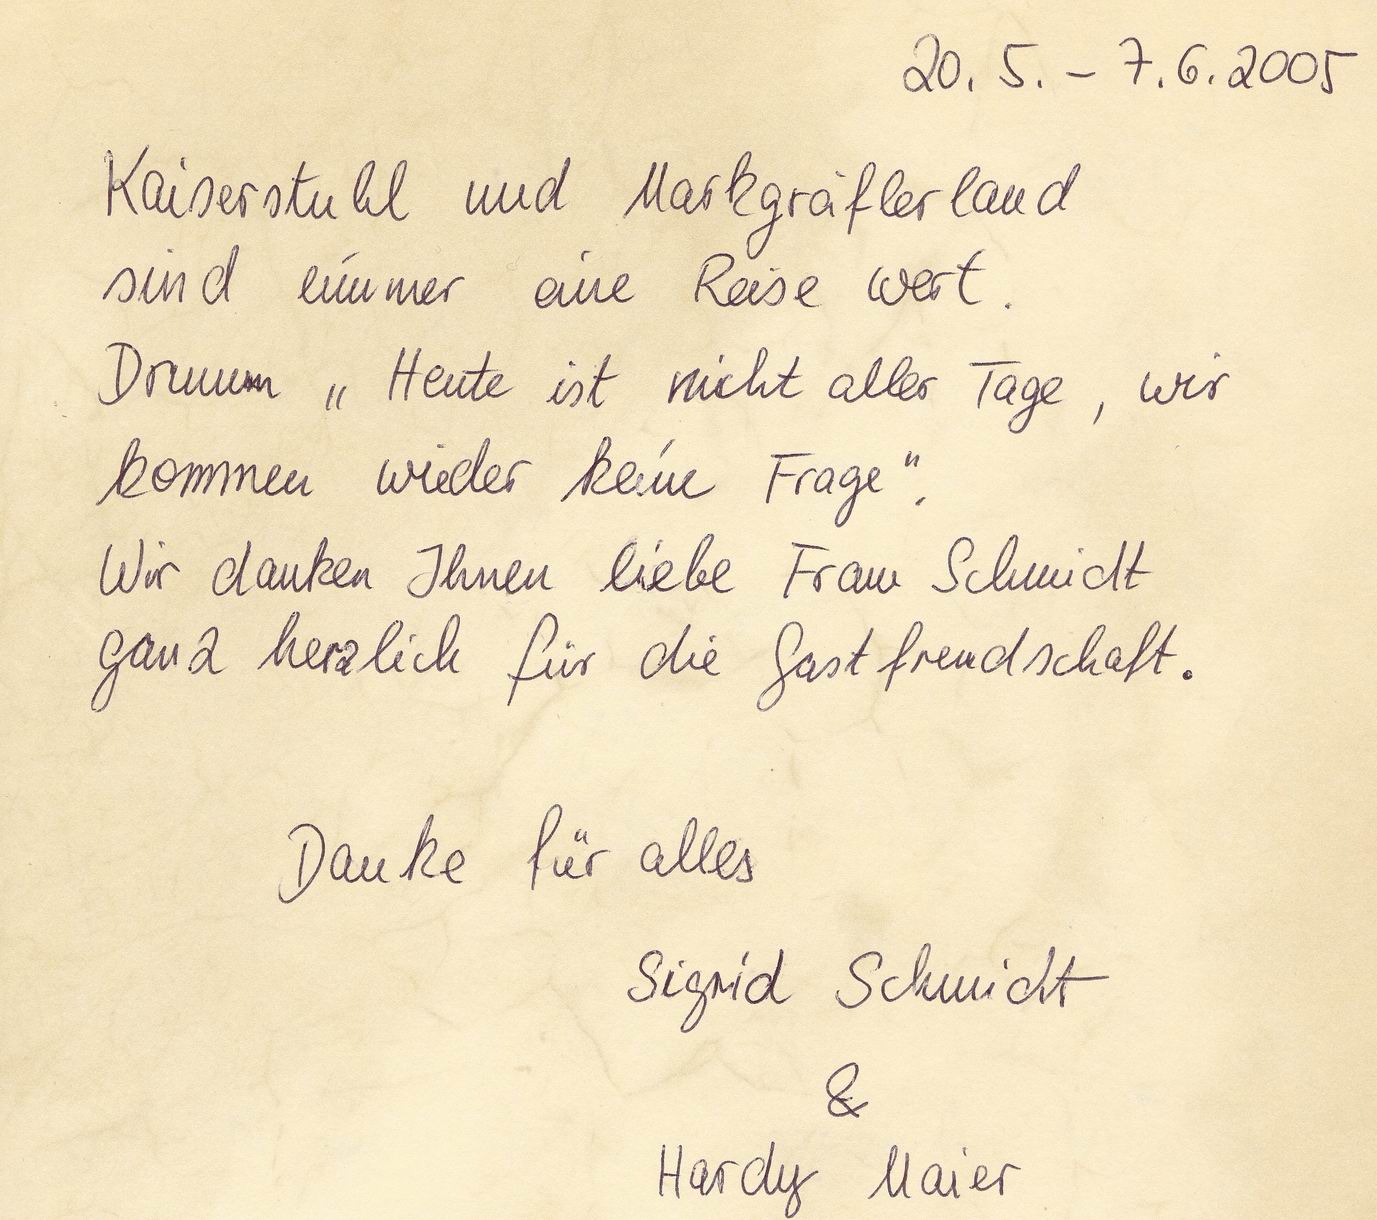 20. 5. – 7. 6. 2005
Kaiserstuhl und Markgräflerland
sind immer eine Reise wert.
Drumm „Heute ist nicht aller Tage, wir
kommen wieder keine Frage“.
Wir danken Ihnen liebe Frau Schmidt
ganz herzlich für die Gastfreudschaft.
Danke für alles
Sigrid Schmidt
&
Hardy Maier